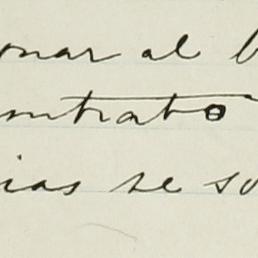 onar al b
ontrato
ias se so